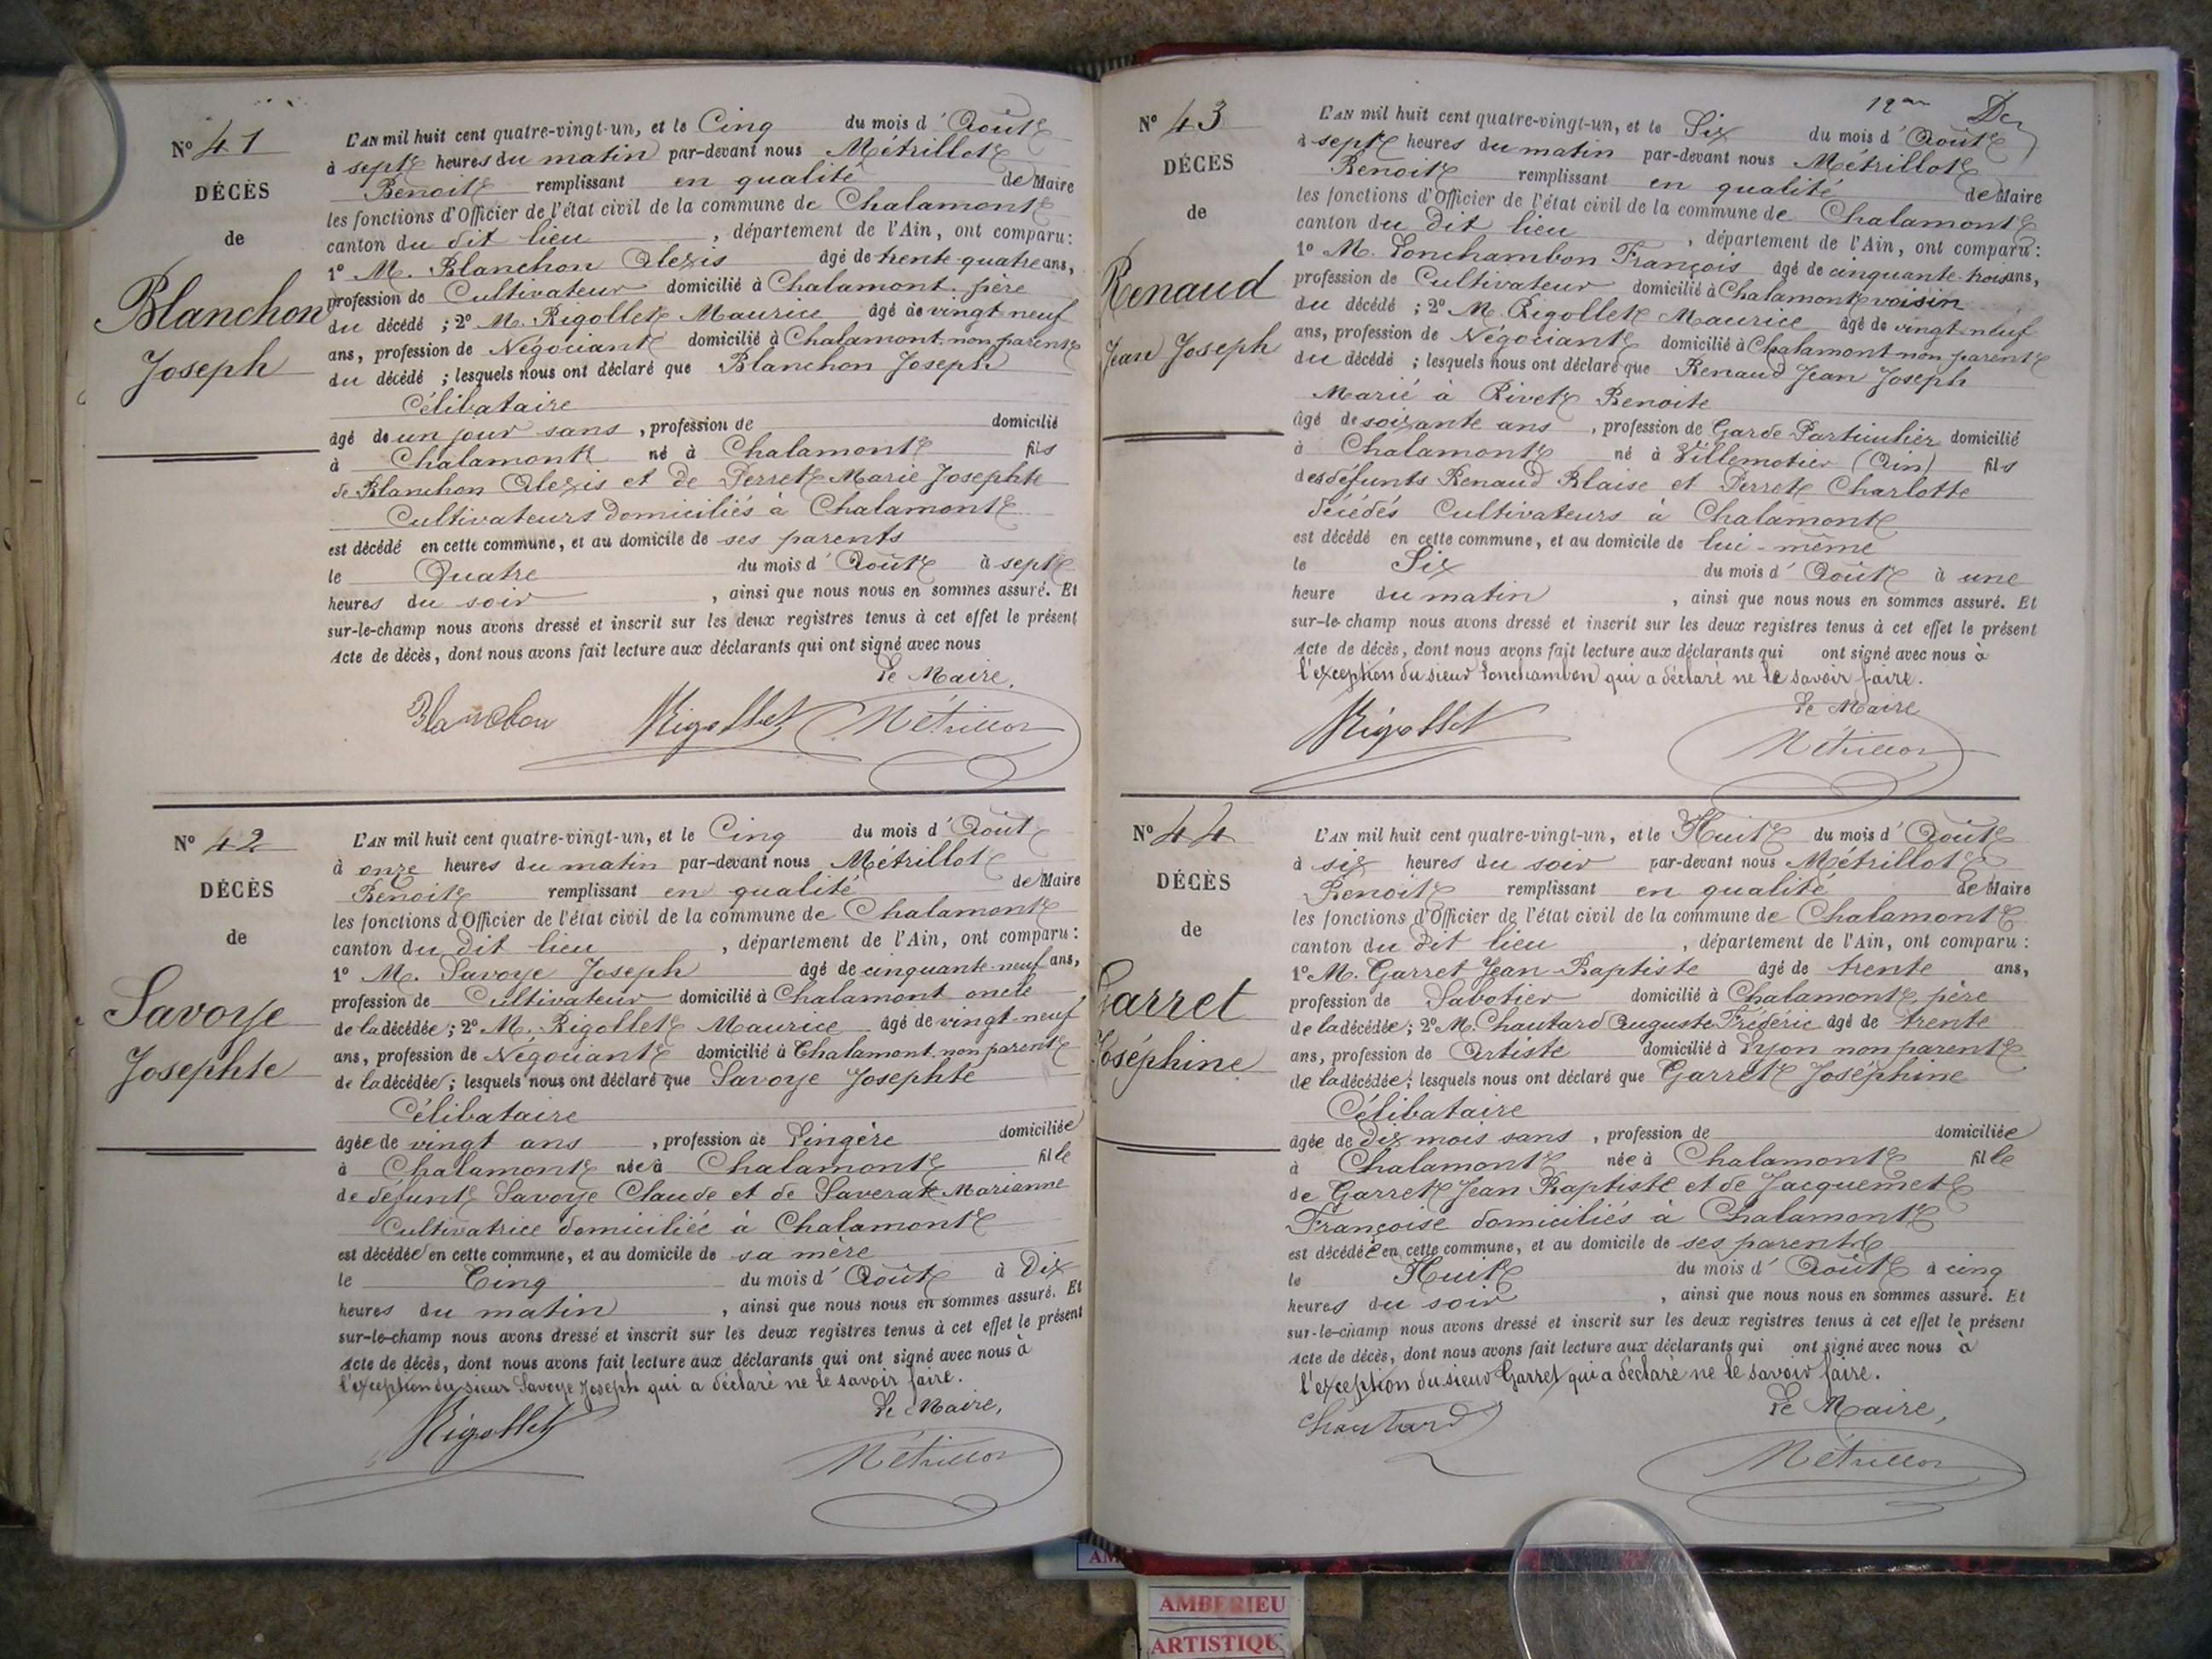 N° 41
DÉCÈS
de
Blanchon
Joseph
L'AN mil huit cent quatre-vingt-un, et le Cinq du mois d'Août
à sept heures du matin par-devant nous Métrillot
Benoit remplissant en qualité de Maire
les fonctions d'Officier de l'état civil de la commune de Chalamont
canton du dit lieu, département de l'Ain, ont comparu:
1° M. Blanchon Alexis âgé de trente-quatre ans,
profession de Cultivateur domicilié à Chalamont père
du décédé ; 2° M. Rigollet Maurice âgé de vingt neuf
ans, profession de Négociant domicilié à Chalamont non parent
du décédé ; lesquels nous ont déclaré que Blanchon Joseph
Célibataire
âgé de un jour sans, profession de domicilié
à Chalamont né à Chalamont fils
de Blanchon Alexis et de Perret Marie Josephte
Cultivateurs domiciliés à Chalamont
est décédé en cette commune, et au domicile de ses parents
le Quatre du mois d'Août à sept
heures du soir, ainsi que nous nous en sommes assuré. Et
sur-le-champ nous avons dressé et inscrit sur les deux registres tenus à cet effet le présent
Acte de décès, dont nous avons fait lecture aux déclarants qui ont signé avec nous
Le Maire,
Blanchon Rigollet Métrillot
N° 42
DÉCÈS
de
Savoye
Josephte
L'AN mil huit cent quatre-vingt-un, et le Cinq du mois d'Août
à onze heures du matin par-devant nous Métrillot
Benoit remplissant en qualité de Maire
les fonctions d'Officier de l'état civil de la commune de Chalamont
canton du dit lieu, département de l'Ain, ont comparu:
1° M. Savoye Joseph âgé de cinquante-neuf ans,
profession de Cultivateur domicilié à Chalamont oncle
de la décédée ; 2° M. Rigollet Maurice âgé de vingt-neuf
ans, profession de Négociant domicilié à Chalamont non parent
de la décédée ; lesquels nous ont déclaré que Savoye Josephte
Célibataire
âgée de vingt ans, profession de Lingère domiciliée
à Chalamont née à Chalamont fille
de défunt Savoye Claude et de Saverat Marianne
Cultivatrice domiciliée à Chalamont
est décédée en cette commune, et au domicile de sa mère
le Cinq du mois d'Août à Dix
heures du matin, ainsi que nous nous en sommes assuré. Et
sur-le-champ nous avons dressé et inscrit sur les deux registres tenus à cet effet le présent
Acte de décès, dont nous avons fait lecture aux déclarants qui ont signé avec nous à
l'exception du sieur Savoye Joseph qui a déclaré ne le savoir faire.
Le Maire,
Rigollet Métrillot
N° 43
DÉCÈS
de
Renaud
Jean Joseph
L'AN mil huit cent quatre-vingt-un, et le Six du mois d'Août
à sept heures du matin par-devant nous Métrillot
Benoit remplissant en qualité de Maire
les fonctions d'Officier de l'état civil de la commune de Chalamont
canton du dit lieu, département de l'Ain, ont comparu:
1° M. Ponchambon François âgé de cinquante-trois ans,
profession de Cultivateur domicilié à Chalamont voisin
du décédé ; 2° M. Rigollet Maurice âgé de vingt-neuf
ans, profession de Négociant domicilié à Chalamont non parent
du décédé ; lesquels nous ont déclaré que Renaud Jean Joseph
Marié à Rivet Benoite
âgé de soixante ans, profession de Garde Particulier domicilié
à Chalamont né à Villemotier (Ain) fils
des défunts Renaud Blaise et Perret Charlotte
décédés Cultivateurs à Chalamont
est décédé en cette commune, et au domicile de lui-même
le Six du mois d'Août à une
heure du matin, ainsi que nous nous en sommes assuré. Et
sur-le-champ nous avons dressé et inscrit sur les deux registres tenus à cet effet le présent
Acte de décès, dont nous avons fait lecture aux déclarants qui ont signé avec nous à
l'exception du sieur Ponchambon qui a déclaré ne le savoir faire.
Le Maire
Rigollet Métrillot
N° 44
DÉCÈS
de
Garret
Joséphine
L'AN mil huit cent quatre-vingt-un, et le Huit du mois d'Août
à six heures du soir par-devant nous Métrillot
Benoit remplissant en qualité de Maire
les fonctions d'Officier de l'état civil de la commune de Chalamont
canton du dit lieu, département de l'Ain, ont comparu:
1° M. Garret Jean-Baptiste âgé de trente ans,
profession de Sabotier domicilié à Chalamont père
de la décédée ; 2° M. Chautard Auguste Frédéric âgé de trente
ans, profession de Artiste domicilié à Lyon non parent
de la décédée ; lesquels nous ont déclaré que Garret Joséphine
Célibataire
âgée de dix mois sans, profession de domiciliée
à Chalamont née à Chalamont fille
de Garret Jean Baptiste et de Jacquemet
Françoise domiciliés à Chalamont
est décédée en cette commune, et au domicile de ses parents
le Huit du mois d'Août à cinq
heures du soir, ainsi que nous nous en sommes assuré. Et
sur-le-champ nous avons dressé et inscrit sur les deux registres tenus à cet effet le présent
Acte de décès, dont nous avons fait lecture aux déclarants qui ont signé avec nous à
l'exception du sieur Garret qui a déclaré ne le savoir faire.
Le Maire,
Chautard Métrillot
AMBERIEU
ARTISTIQU